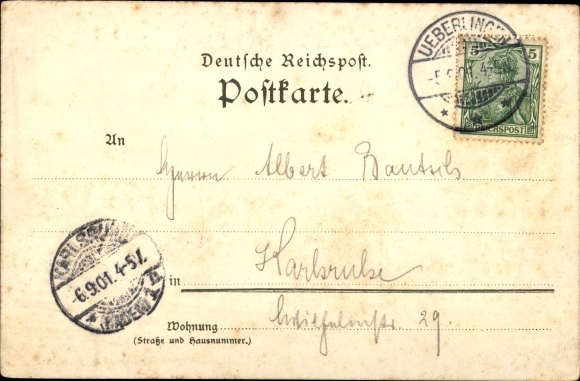 Deutsche Reichspost.
Postkarte.
UEBERLINGEN
5.9.01.
5 5
REICHSPOST
An
Herrn Albert
KARLSRUHE
6.9.01. 4-5V.
in Karlsruhe
Wohnung Wilhelmstr. 29.
(Straße und Hausnummer.)